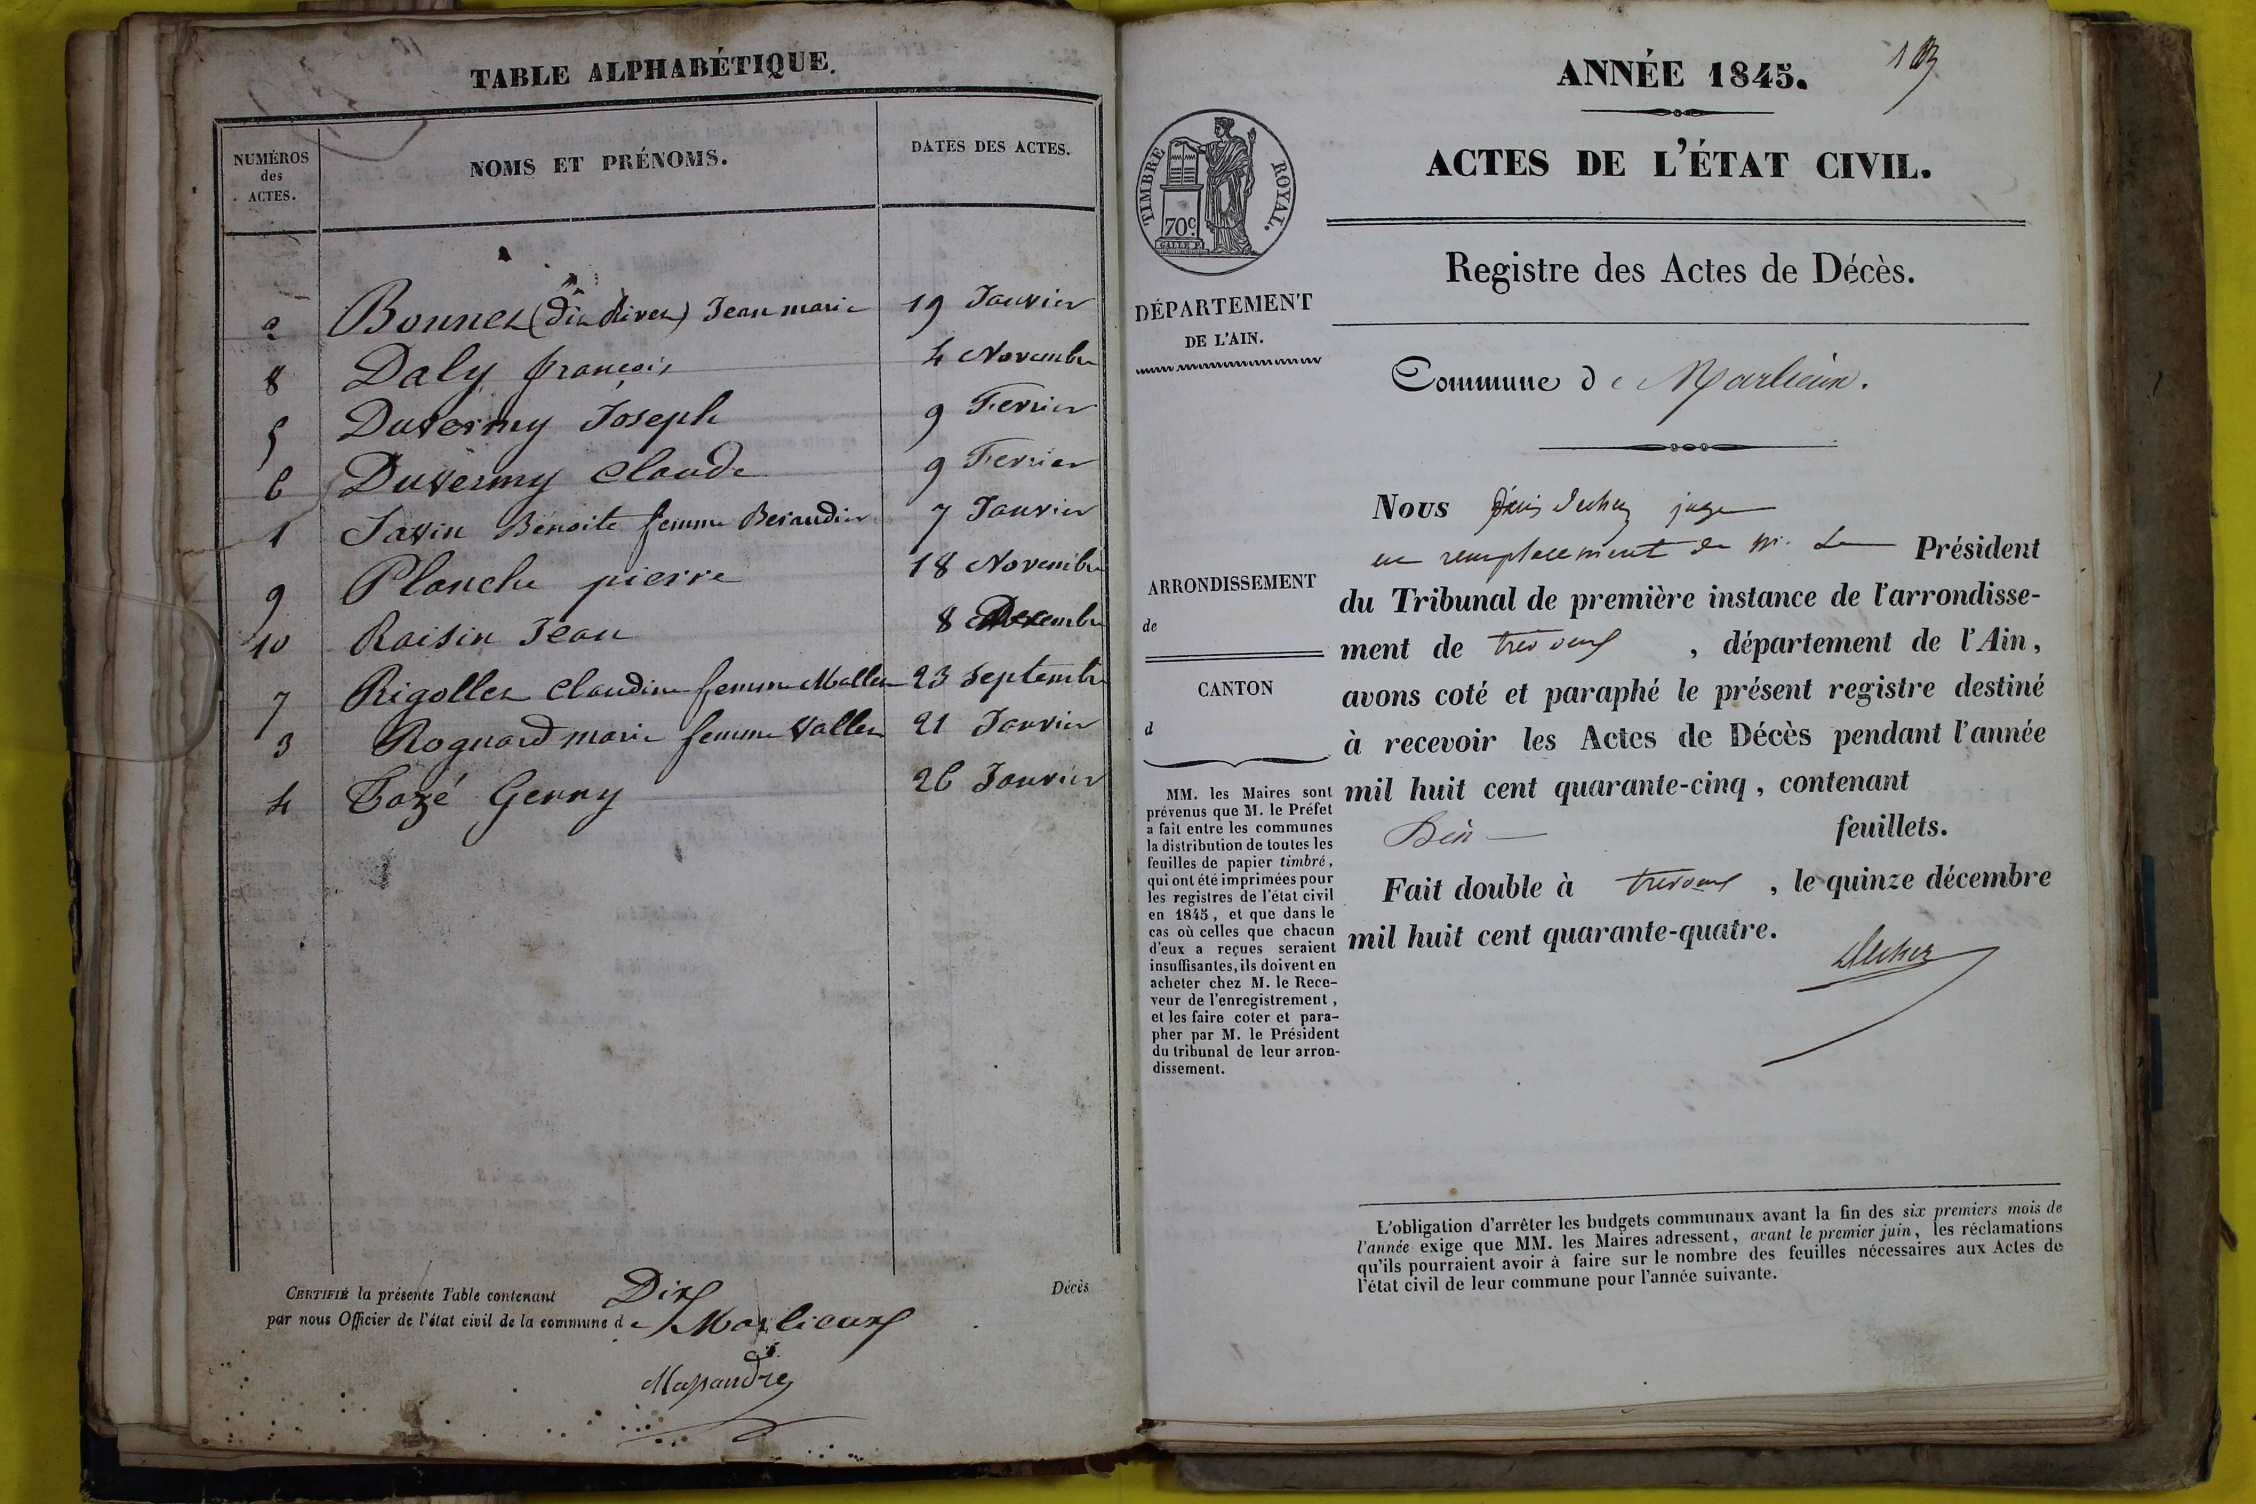 TABLE ALPHABÉTIQUE.
NUMÉROS des ACTES.
NOMS ET PRÉNOMS.
DATES DES ACTES.
2 Bonnet (dit Rivet) Jean marie 19 Janvier
8 Daly françois 4 Novembre
5 Duvernay Joseph 9 Fevrier
6 Duvernay Claude 9 Fevrier
1 Savin Benoite femme Beraudier 7 Janvier
9 Planche pierre 18 Novembre
10 Raisin Jean 8 Decembre
7 Rigollet Claudine femme Mallet 23 Septembre
3 Rognard marie femme Vallet 21 Janvier
4 Tozé Genny 26 Janvier
CERTIFIÉ la présente Table contenant Dix Décès
par nous Officier de l'état civil de la commune de Marlieux
ANNÉE 1845.
ACTES DE L'ÉTAT CIVIL.
TIMBRE ROYAL.
70c.
Registre des Actes de Décès.
DÉPARTEMENT
DE L'AIN.
Commune de Marlieux.
Nous juge
en remplacement de Mr. Le Président
du Tribunal de première instance de l'arrondisse-
ment de trevoux, département de l'Ain,
avons coté et paraphé le présent registre destiné
à recevoir les Actes de Décès pendant l'année
mil huit cent quarante-cinq, contenant
feuillets.
Fait double à trevoux, le quinze décembre
mil huit cent quarante-quatre.
ARRONDISSEMENT
de
CANTON
d
MM. les Maires sont
prévenus que M. le Préfet
a fait entre les communes
la distribution de toutes les
feuilles de papier timbré,
qui ont été imprimées pour
les registres de l'état civil
en 1845, et que dans le
cas où celles que chacun
d'eux a reçues seraient
insuffisantes, ils doivent en
acheter chez M. le Rece-
veur de l'enregistrement,
et les faire coter et para-
pher par M. le Président
du tribunal de leur arron-
dissement.
L'obligation d'arrêter les budgets communaux avant la fin des six premiers mois de
l'année exige que MM. les Maires adressent, avant le premier juin, les réclamations
qu'ils pourraient avoir à faire sur le nombre des feuilles nécessaires aux Actes de
l'état civil de leur commune pour l'année suivante.